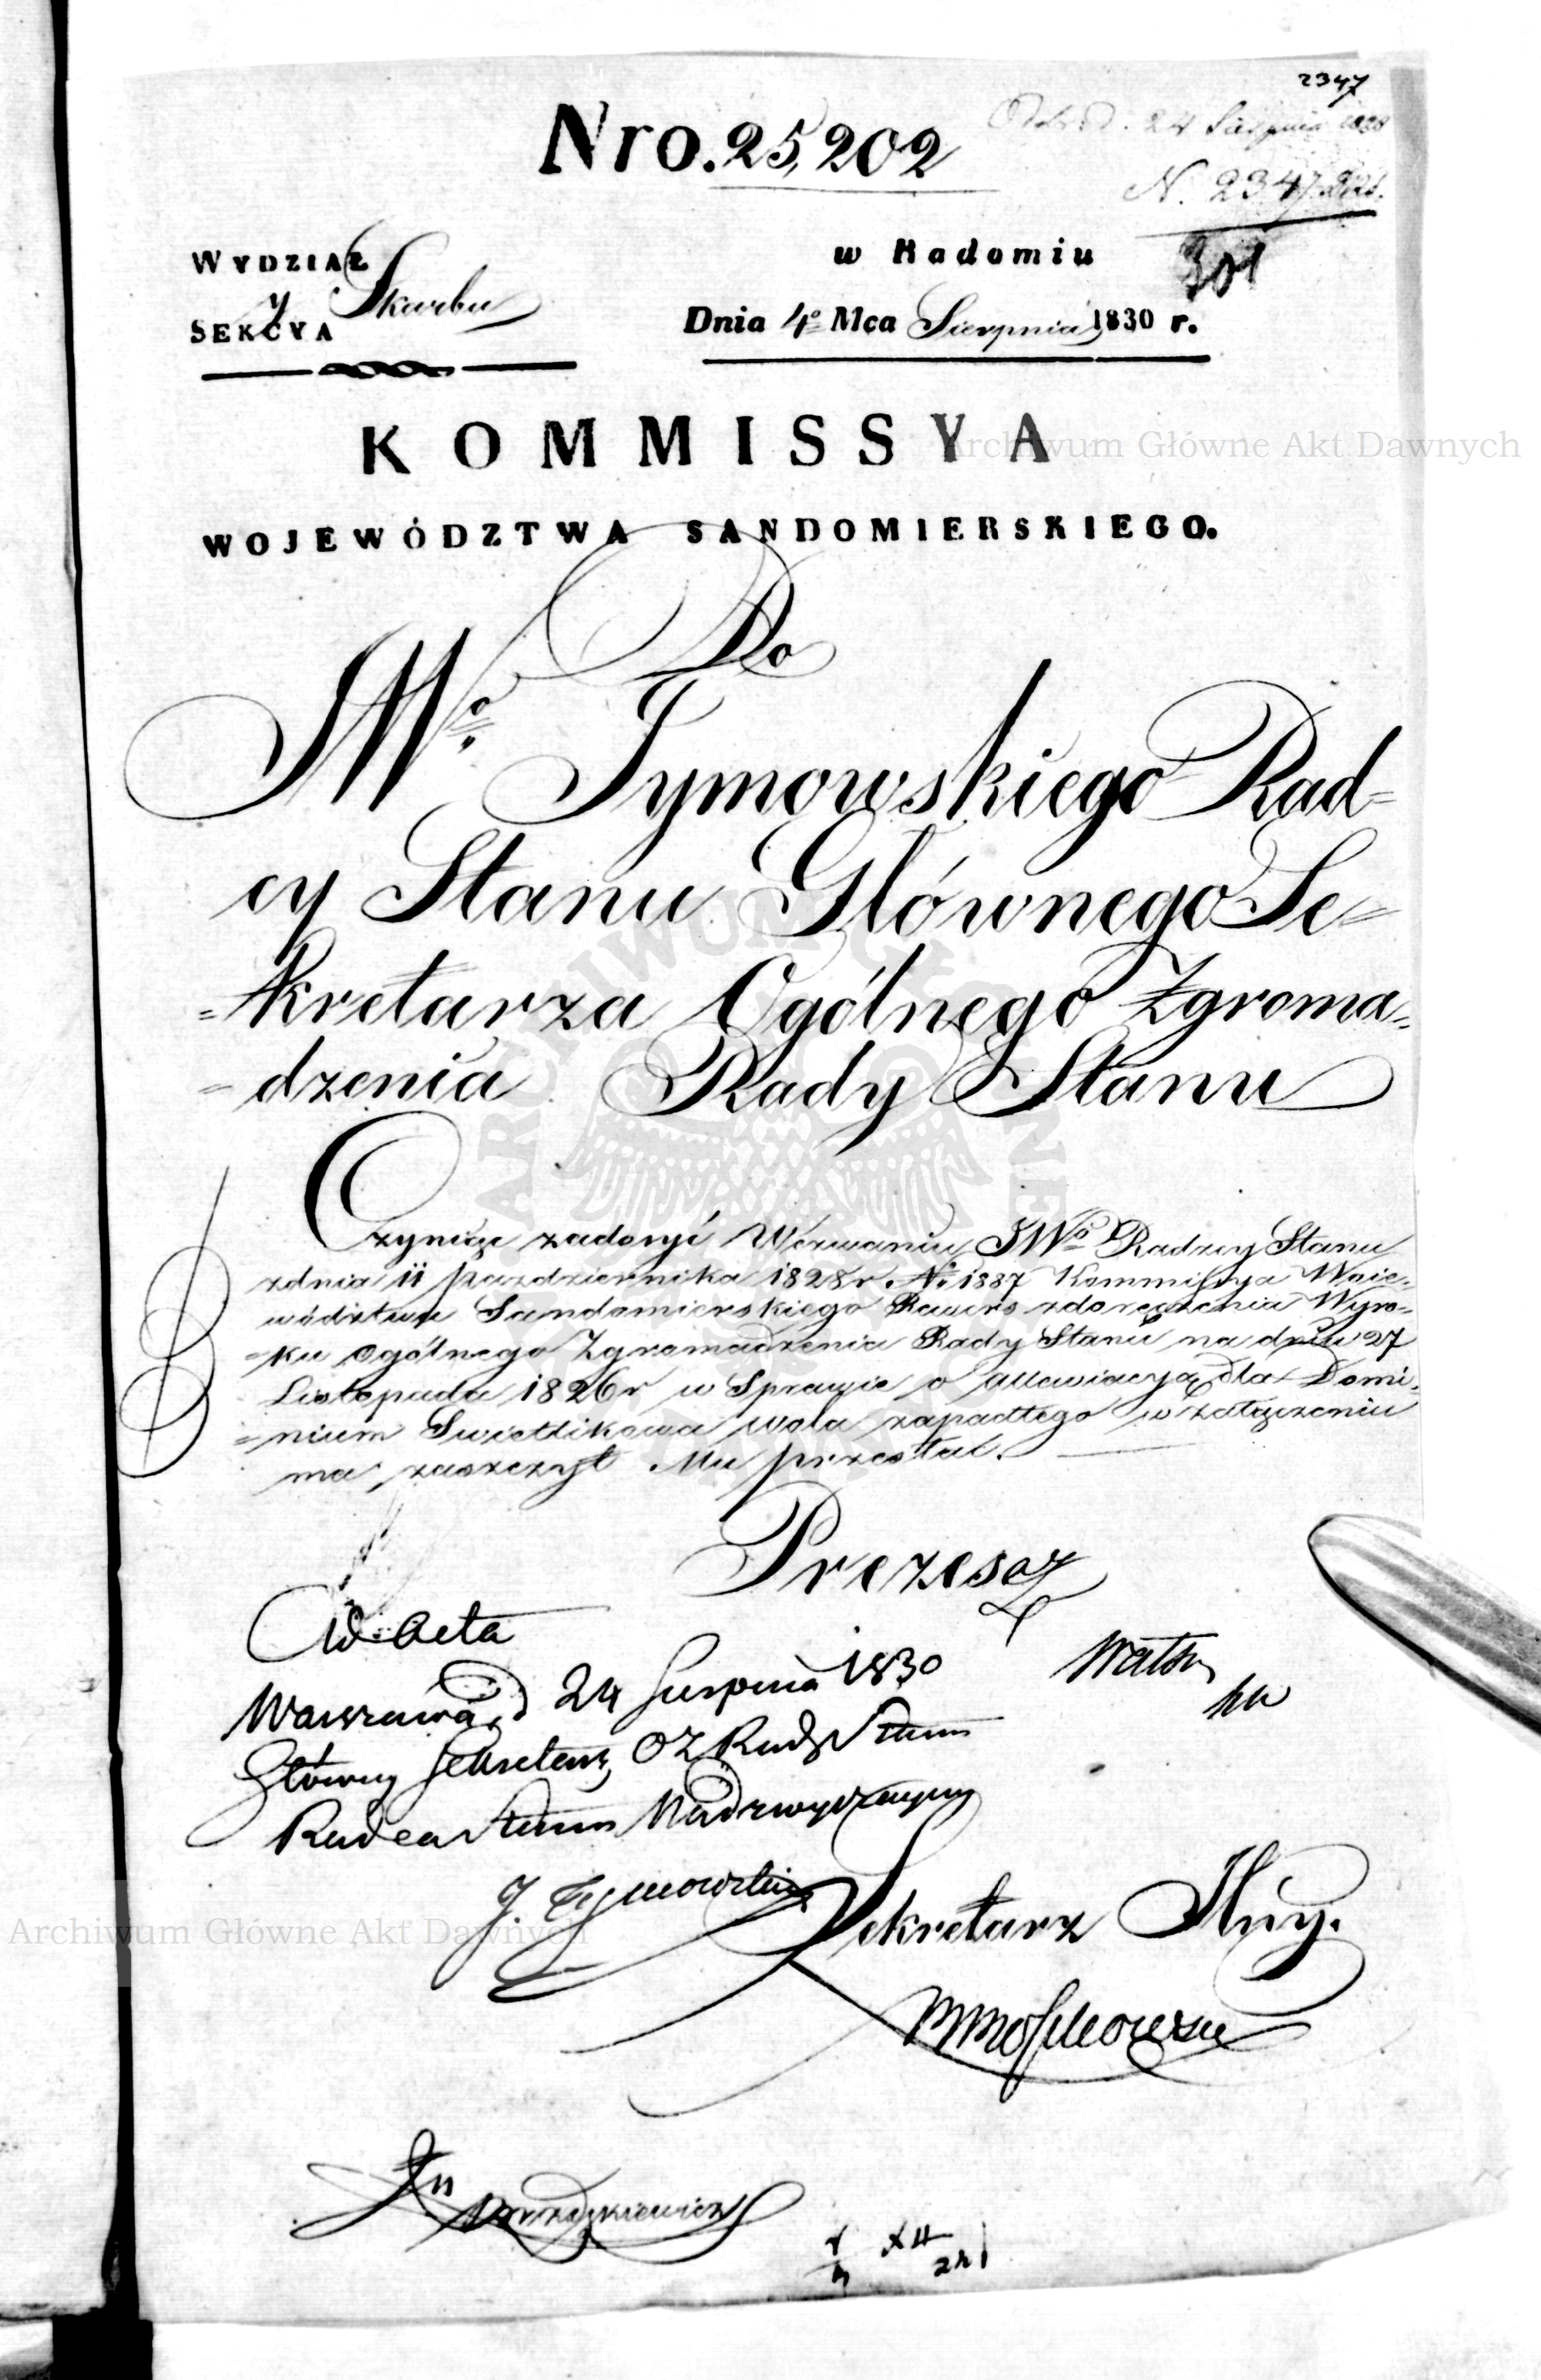 2347
Nro. 25,202
Odebr. d. 24 Sierpnia 1830
N. 2347
301
WYDZIAŁ
y Skarbu
SEKCYA
w Radomiu
Dnia 4º Mca Sierpnia 1830 r.
KOMMISSYA
WOJEWÓDZTWA SANDOMIERSKIEGO.
Do
JWº Tymowskiego Rad=
cy Stanu Głównego Se=
=kretarza Ogólnego Zgroma=
=dzenia Rady Stanu
Czyniąc zadosyć Wezwaniu JWº Radzcy Stanu
zdnia 11 Pazdziernika 1828 r. Nº 1887 Kommissya Woie=
wództwa Sandomierskiego Rewers zdoręczenia Wyro=
=ku Ogólnego Zgromadzenia Rady Stanu na dniu 27
Listopada 1826 r w Sprawie o allewiacyą dla Domi=
=nium Swietlikowa wola zapadłego w załączeniu
ma zaszczyt Mu przesłać.
Prezes
Ad Acta
Warszawa d 24 Sierpnia 1830
Główny Sekretarz OZ Rady Stanu
Radca Stanu Nadzwyczayny
J. Tymowski
Sekretarz Jlny.
Archiwum Główne Akt Dawnych
Archiwum Główne Akt Dawnych